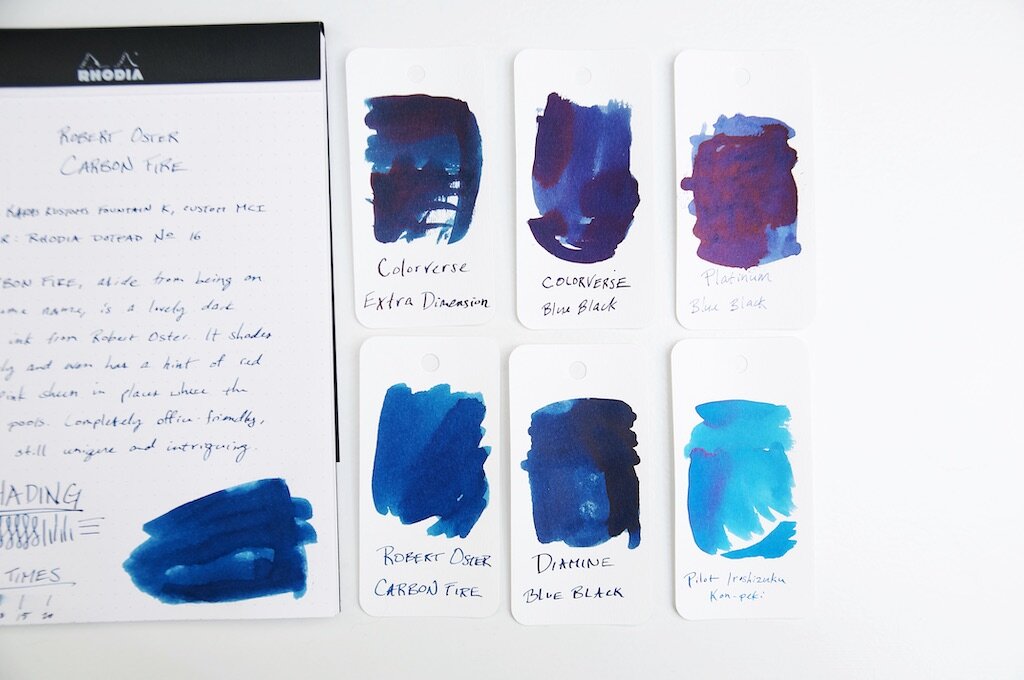 RHODIA
ROBERT OSTER
CARBON FIRE
KARAS KUSTOMS FOUNTAIN K, CUSTOM MCI
R: RHODIA DOTPAD Nº 16
FIRE, aside from being an
name, is a lovely dark
ink from Robert Oster. It shades
and even has a hint of red
sheen in places where the
pools. Completely office-friendly,
still unique and intriguing.
HADING
TIMES
15 20
Colorverse
Extra Dimension
COLORVERSE
Blue Black
Platinum
Blue Black
ROBERT OSTER
CARBON FIRE
DIAMINE
BLUE BLACK
Pilot Iroshizuku
Kon-peki